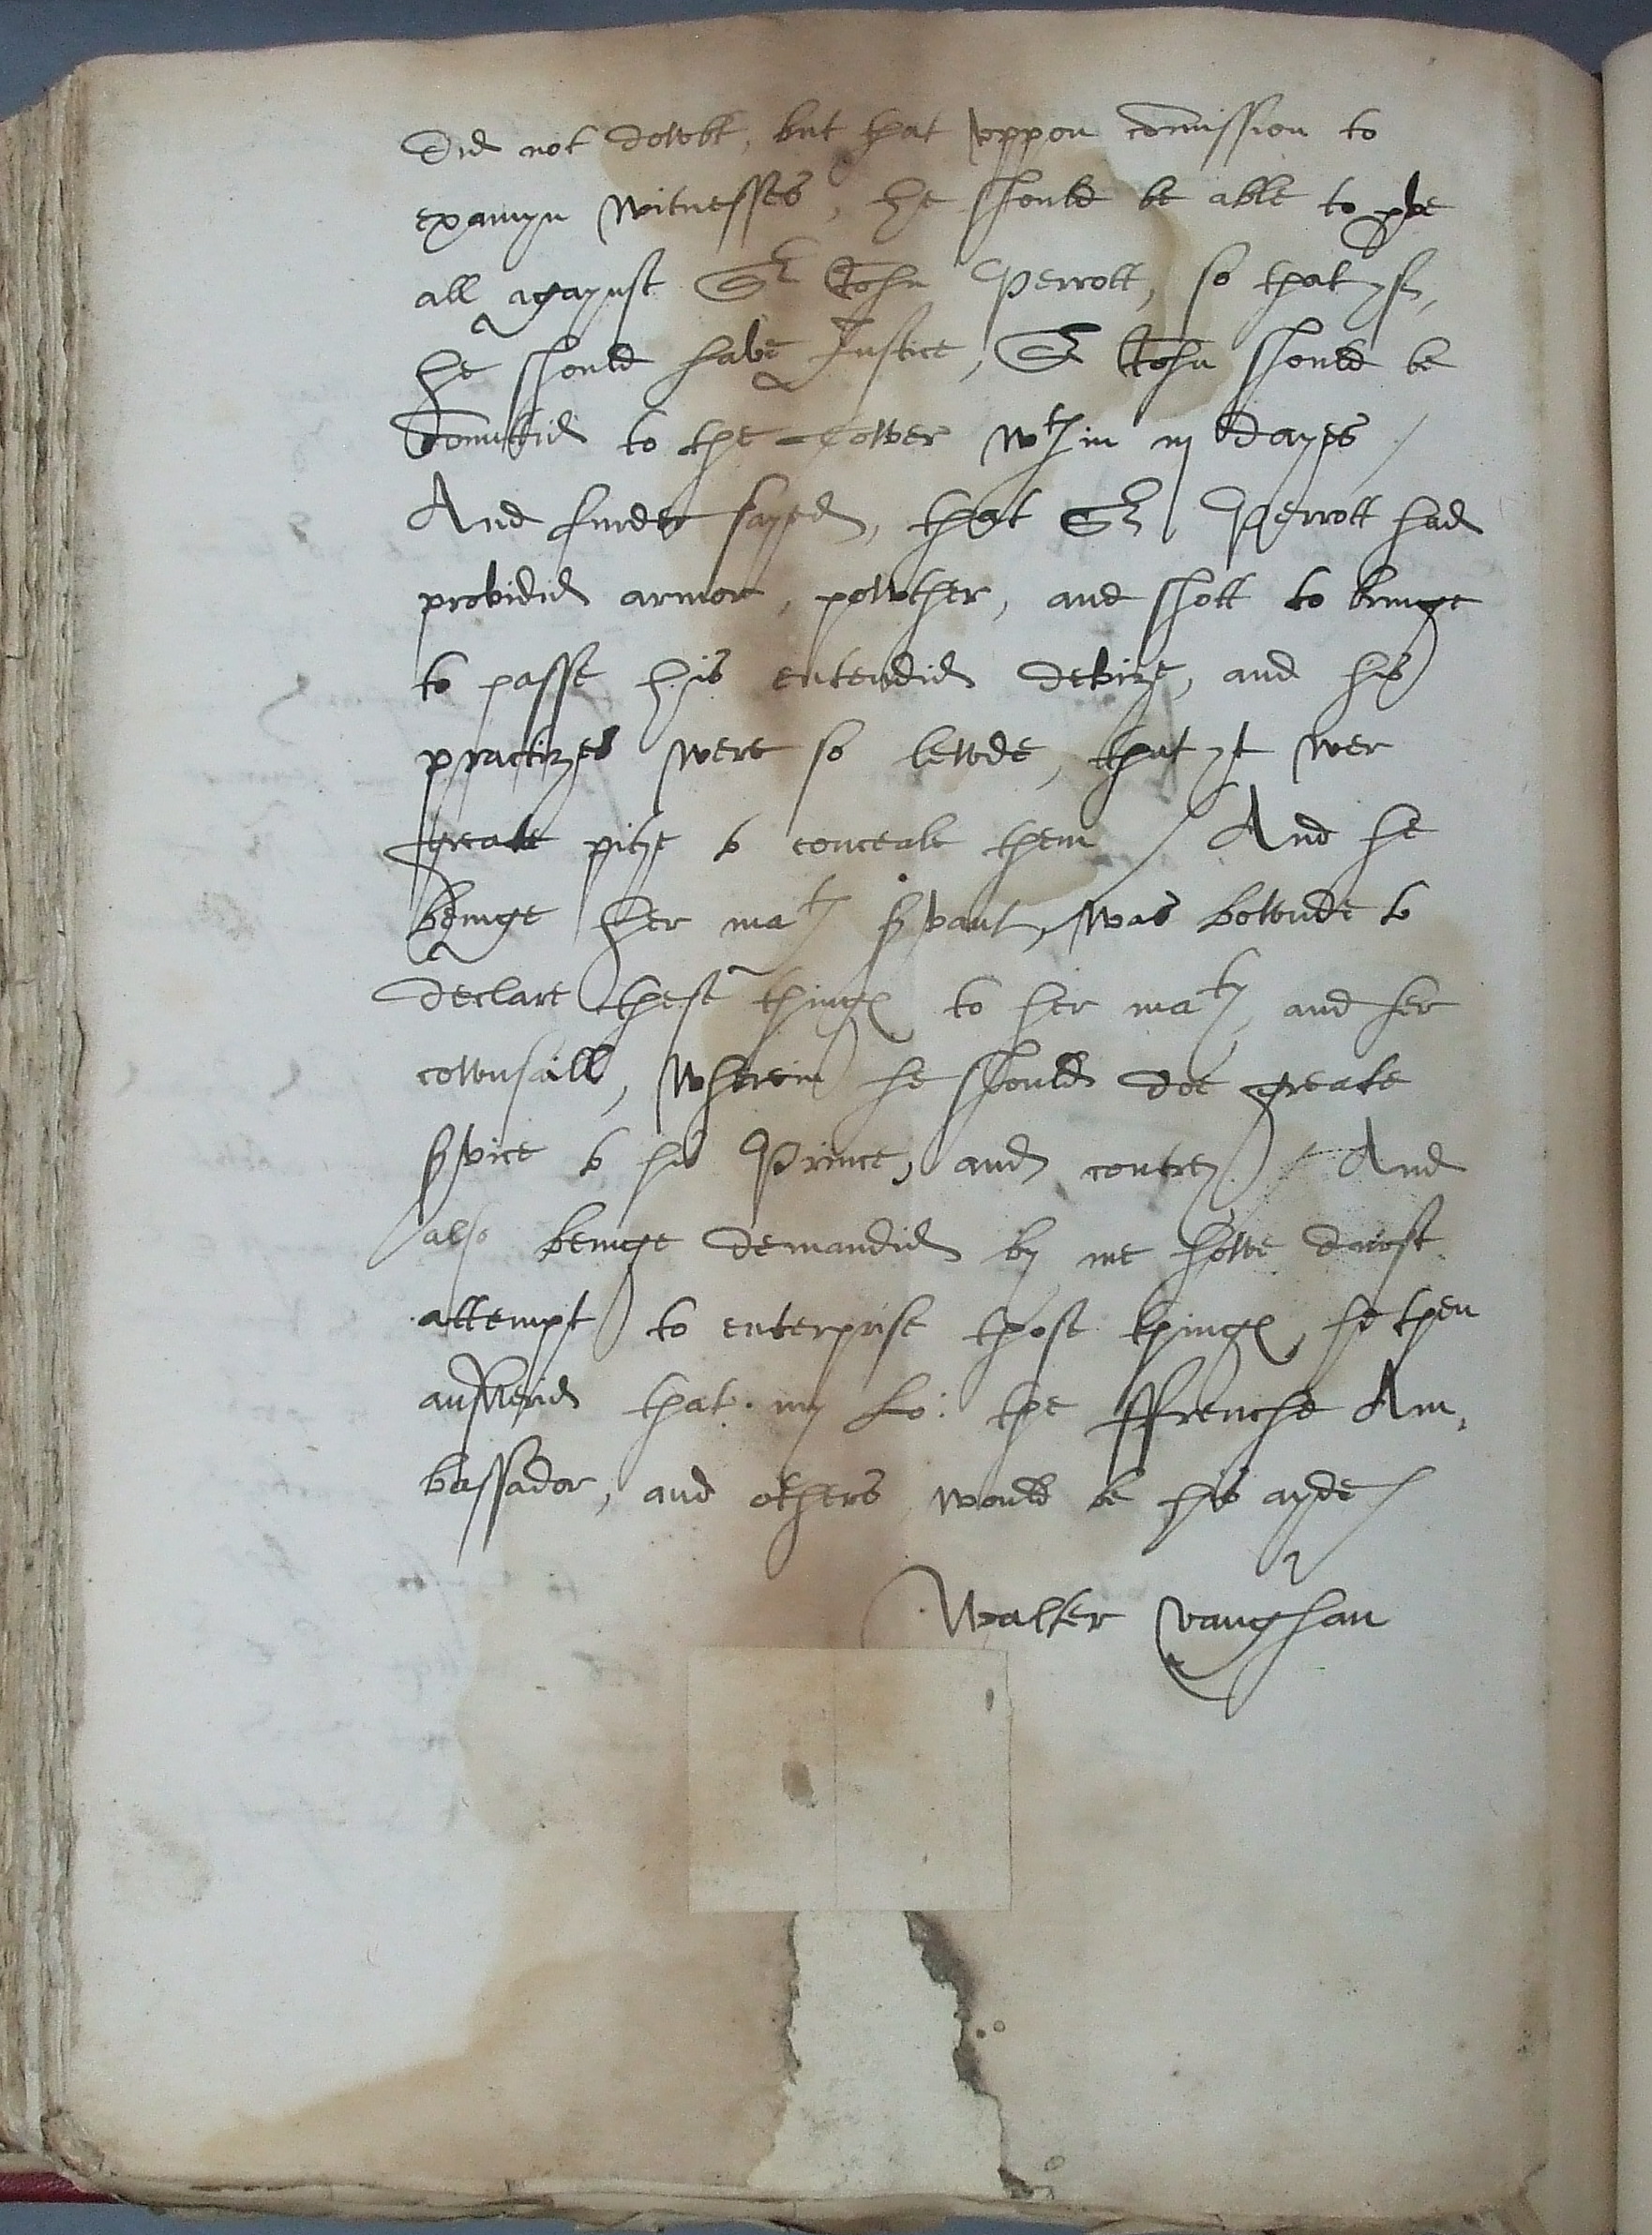 Did not dowbt, but that vppon comission to
examyn witnesses, he should be able to pve
all agaynst Sr John Perrott, so that yf,
he should have Justice, Sr John should be
comittid to the Tower wth in iij dayes /
And furder sayed, that Sr J Perrott had
providid armor, powther, and shott to bringe
to passe his entendid devize, and his
practizes were so lewde, that yt wer
greate pitye to conceale them / And he
beinge her maty svant, was bownde to
declare these things to her maty, and her
cownsaill, wherein he should doe greate
svice to his Prince, and contrey / And
also beinge demandid by me howe durst
attempt to enterprise those things, he then
answerid that my Lo: the ffrenche Am,
bassador, and others would be his ayde /
Walter Vaughan